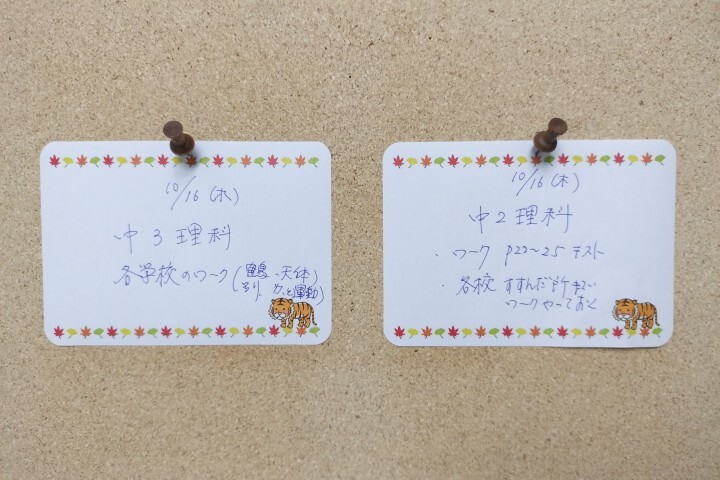 10/16 (木)
中3 理科
各学校のワーク (・天体)
力と運動)
10/16 (木)
中2 理科
・ワーク P22〜25 テスト
・各校 すすんだ所まで
ワークやっておく